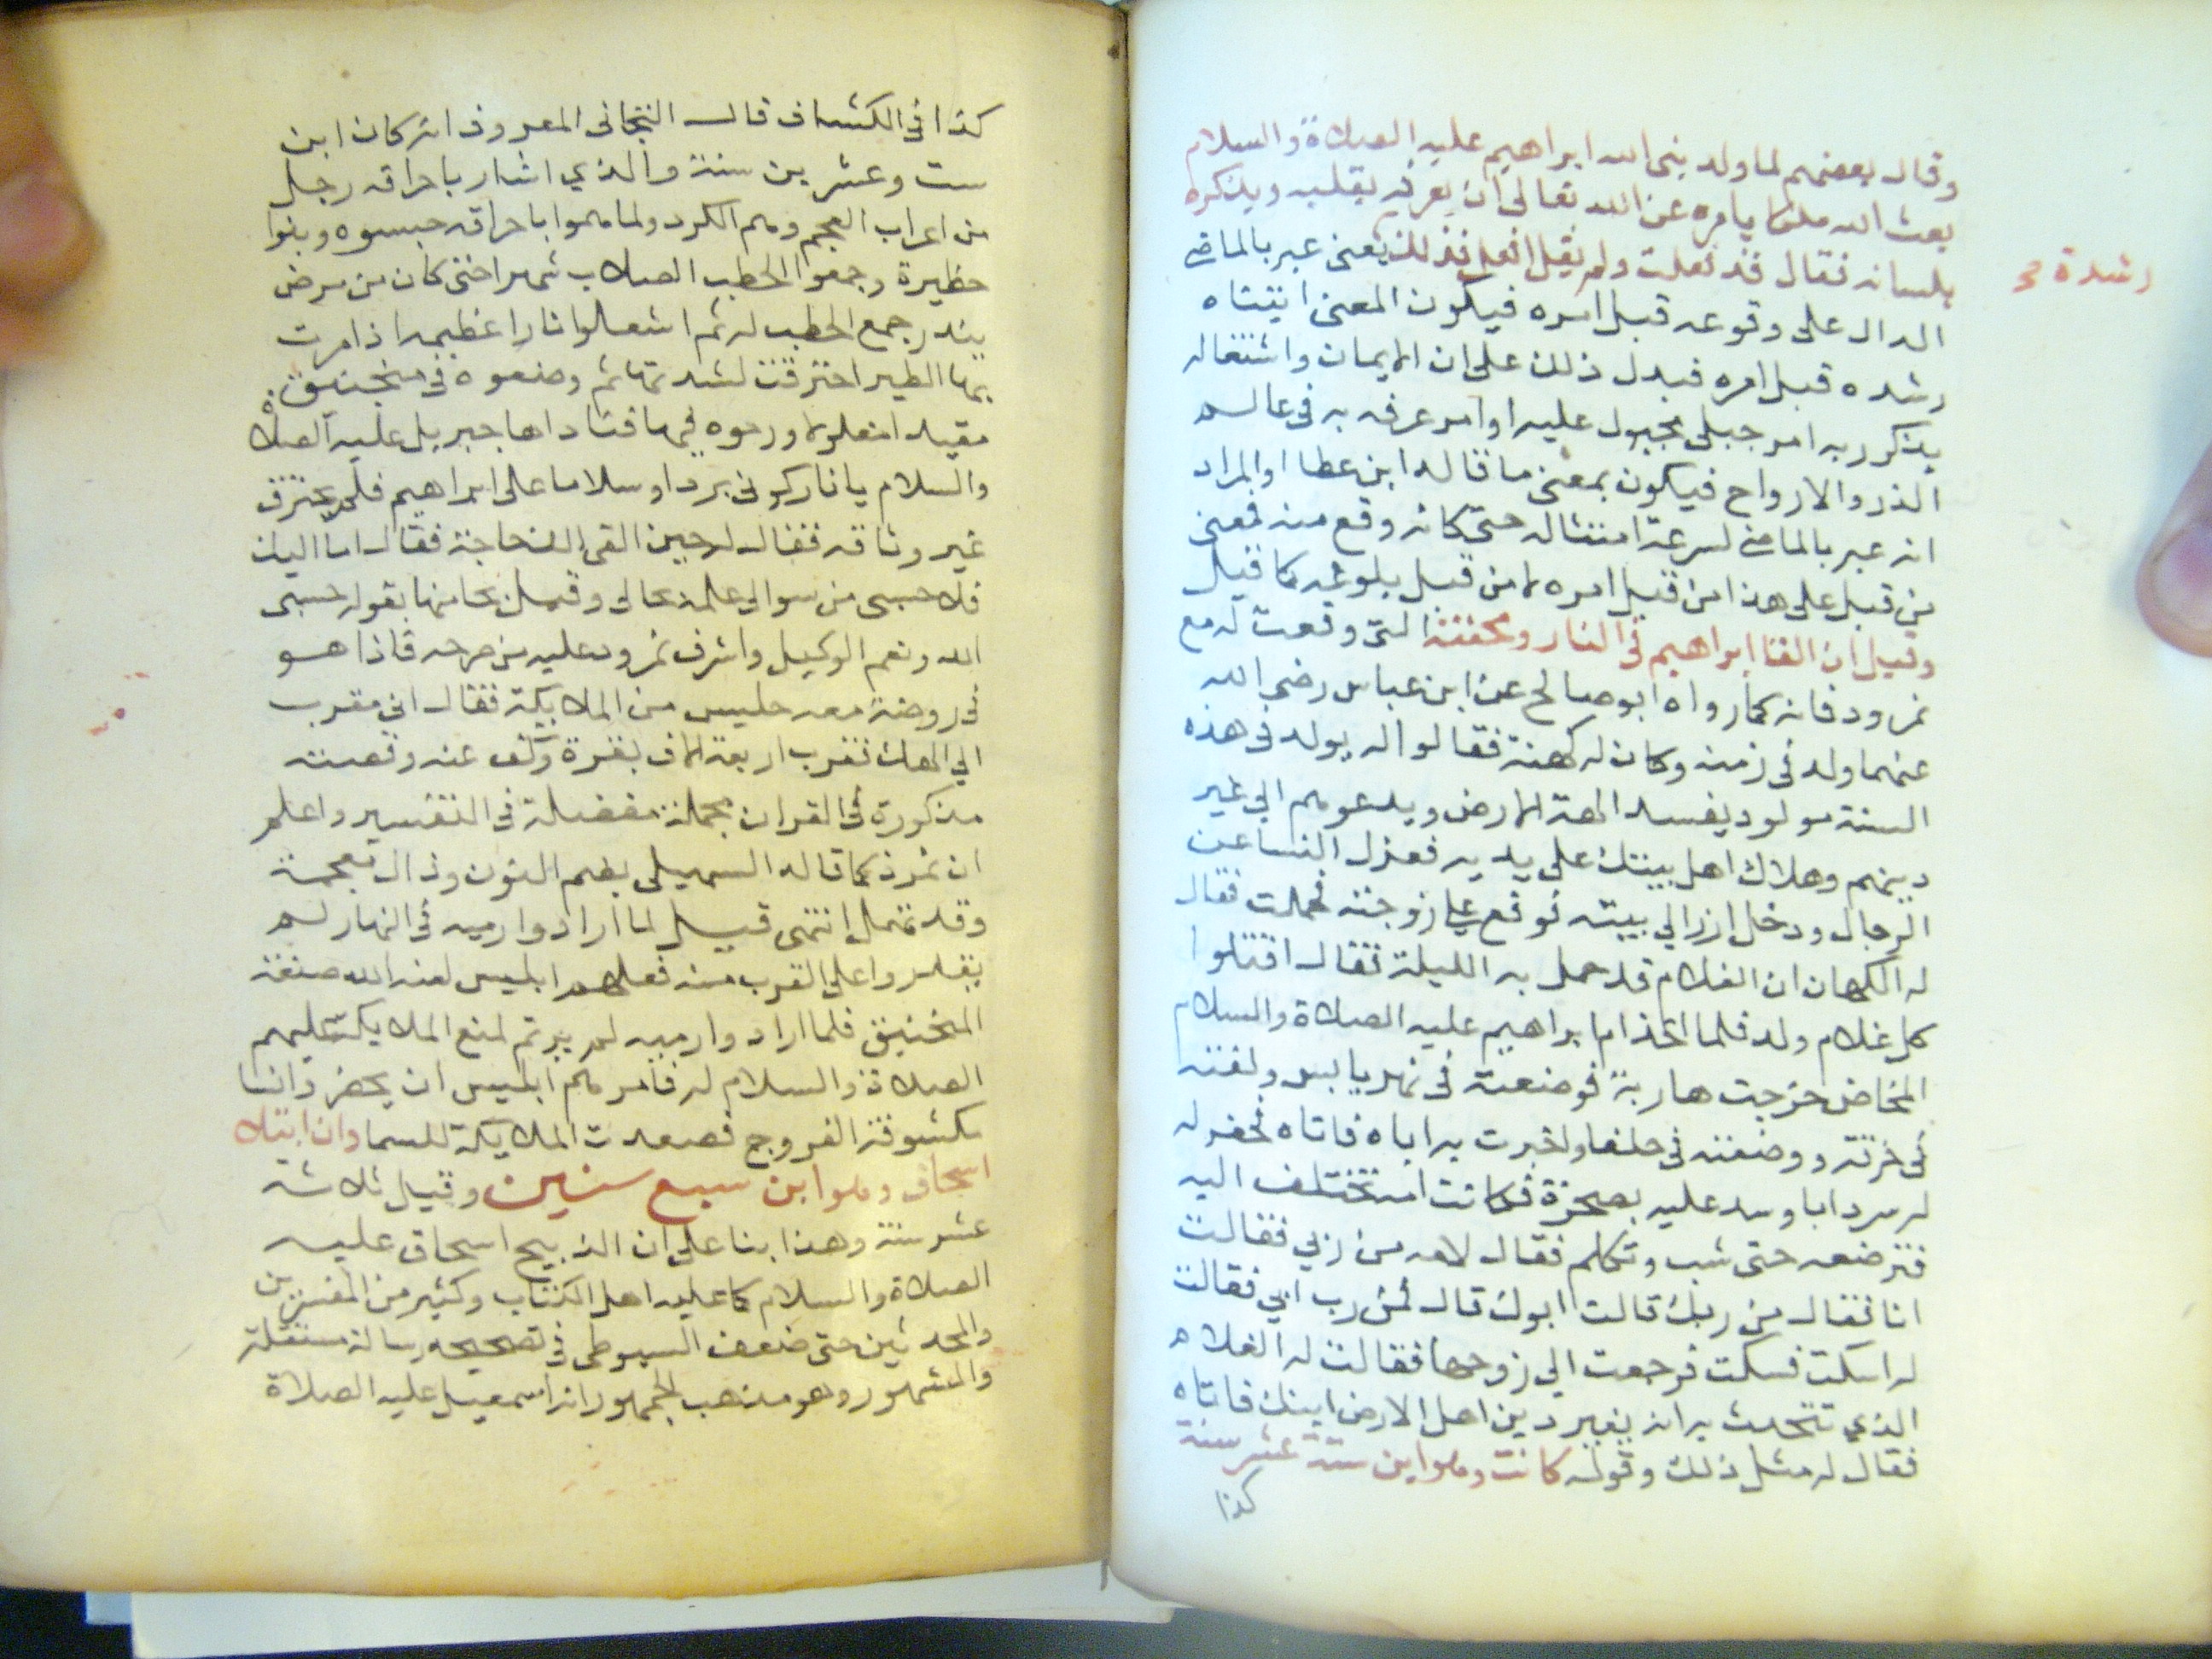 وقال بعضهم لما ولد بنى الله ابراهيم عليه الصلاة والسلام
بعث الله ملكا يامره عن الله تعالى ان يعرفه بقلبه ويذكره
بلسانه فقال قد فعلت ولم يقل افعل فذلك يعنى عبر بالماضي
رشده
الدال على وقوعه قبل امره فيكون المعنى اتيناه
رشده قبل امره فيدل ذلك على ان الايمان واشتغاله
بذكر ربه امر جبلى مجبول عليه او امر عرفه به فى عالم
الذر والارواح فيكون بمعنى ما قاله ابن عطا او المراد
انه عبر بالماضي لسرعة امتثاله حتى كانه وقع منه فمعنى
من قبل على هذا من قبل امره لا من قبل بلوغه كما قيل
وقيل ان القا ابراهيم فى النار ومحنته التى وقعت له مع
نمرود فانه كما رواه ابو صالح عن ابن عباس رضى الله
عنهما ولد فى زمنه وكان له كهنة فقالوا له يولد فى هذه
السنة مولود يفسد الهة الارض ويدعوهم الي غير
دينهم وهلاك اهل بيتك على يديه فعزل النسا عن
الرجال ودخل ازر الي بيته فوقع على زوجته فحملت فقال
له الكهان ان الغلام قد حمل به الليلة فقال اقتلوا
كل غلام ولد فلما اخذ ام ابراهيم عليه الصلاة والسلام
المخاض خرجت هاربة فوضعته فى نهر يابس ولفته
فى خرقة ووضعته فى حلفا واخبرت به اباه فاتاه فحفر له
له سردابا وسد عليه بصخرة فكانت امه تختلف اليه
فترضعه حتى شب وتكلم فقال لامه من ربي فقالت
انا فقال من ربك قالت ابوك قال فمن رب ابي فقالت
له اسكت فسكت فرجعت الي زوجها فقالت له الغلام
الذي نتحدث به انه يغير دين اهل الارض ابنك فاتاه
فقال له مثل ذلك وقوله كانت وهو ابن ستة عشر سنة
كذا
كذا فى الكشاف قال التجانى المعروف انه كان ابن
ست وعشرين سنة والذي اشار باحراقه رجل
من اعراب العجم وهم الكرد ولما هموا باحراقه حبسوه وبنوا
حظيرة وجمعوا الحطب الصلاب شهرا حتى كان من مرض
ينذر جمع الحطب له ثم اشعلوا نارا عظيمه اذا مرت
بها الطير احترقت لشدتها ثم وضعوه فى منجنيق
مقيدا مغلولا ورموه فيها فناداها جبريل عليه الصلاة
والسلام يا نار كونى بردا وسلاما على ابراهيم فلم يحترق
غير وثاقه فقال له حين القى الك حاجة فقال اما اليك
فلا حسبى من سوالى علمه بحالى وقيل نجا منها بقوله حسبى
الله ونعم الوكيل واشرف نمرود عليه من صرحه فاذا هو
فى روضة معه جليس من الملايكة فقال انى مقرب
الي الهك فقرب اربعة الاف بقرة وكف عنه وقصته
مذكورة فى القران مجملة مفضلة فى التفسير واعلم
ان نمرذ كما قاله السهيلى بضم النون وذال معجمة
وقد تهمل انتهى قيل لما ارادوا رميه فى النهار لم
يقدروا على القرب منه فعلمهم ابليس لعنه الله صنعة
المنجنيق فلما ارادوا رميه لم يرتم لمنع الملايكة عليهم
الصلاة والسلام له فامرهم ابليس ان يحضروا نسا
مكشوفة الفروج فصعدت الملايكة للسما وان ابتلاه
اسحاق وهو ابن سبع سنين وقيل ثلاثة
عشر سنة وهذا بنا على ان الذبيح اسحاق عليه
الصلاة والسلام كما عليه اهل الكتاب وكثير من المفسرين
والمحدثين حتى ضعف السيوطى فى تصحيحه رسالة مستقلة
والمشهور وهو مذهب الجمهور انه اسمعيل عليه الصلاة